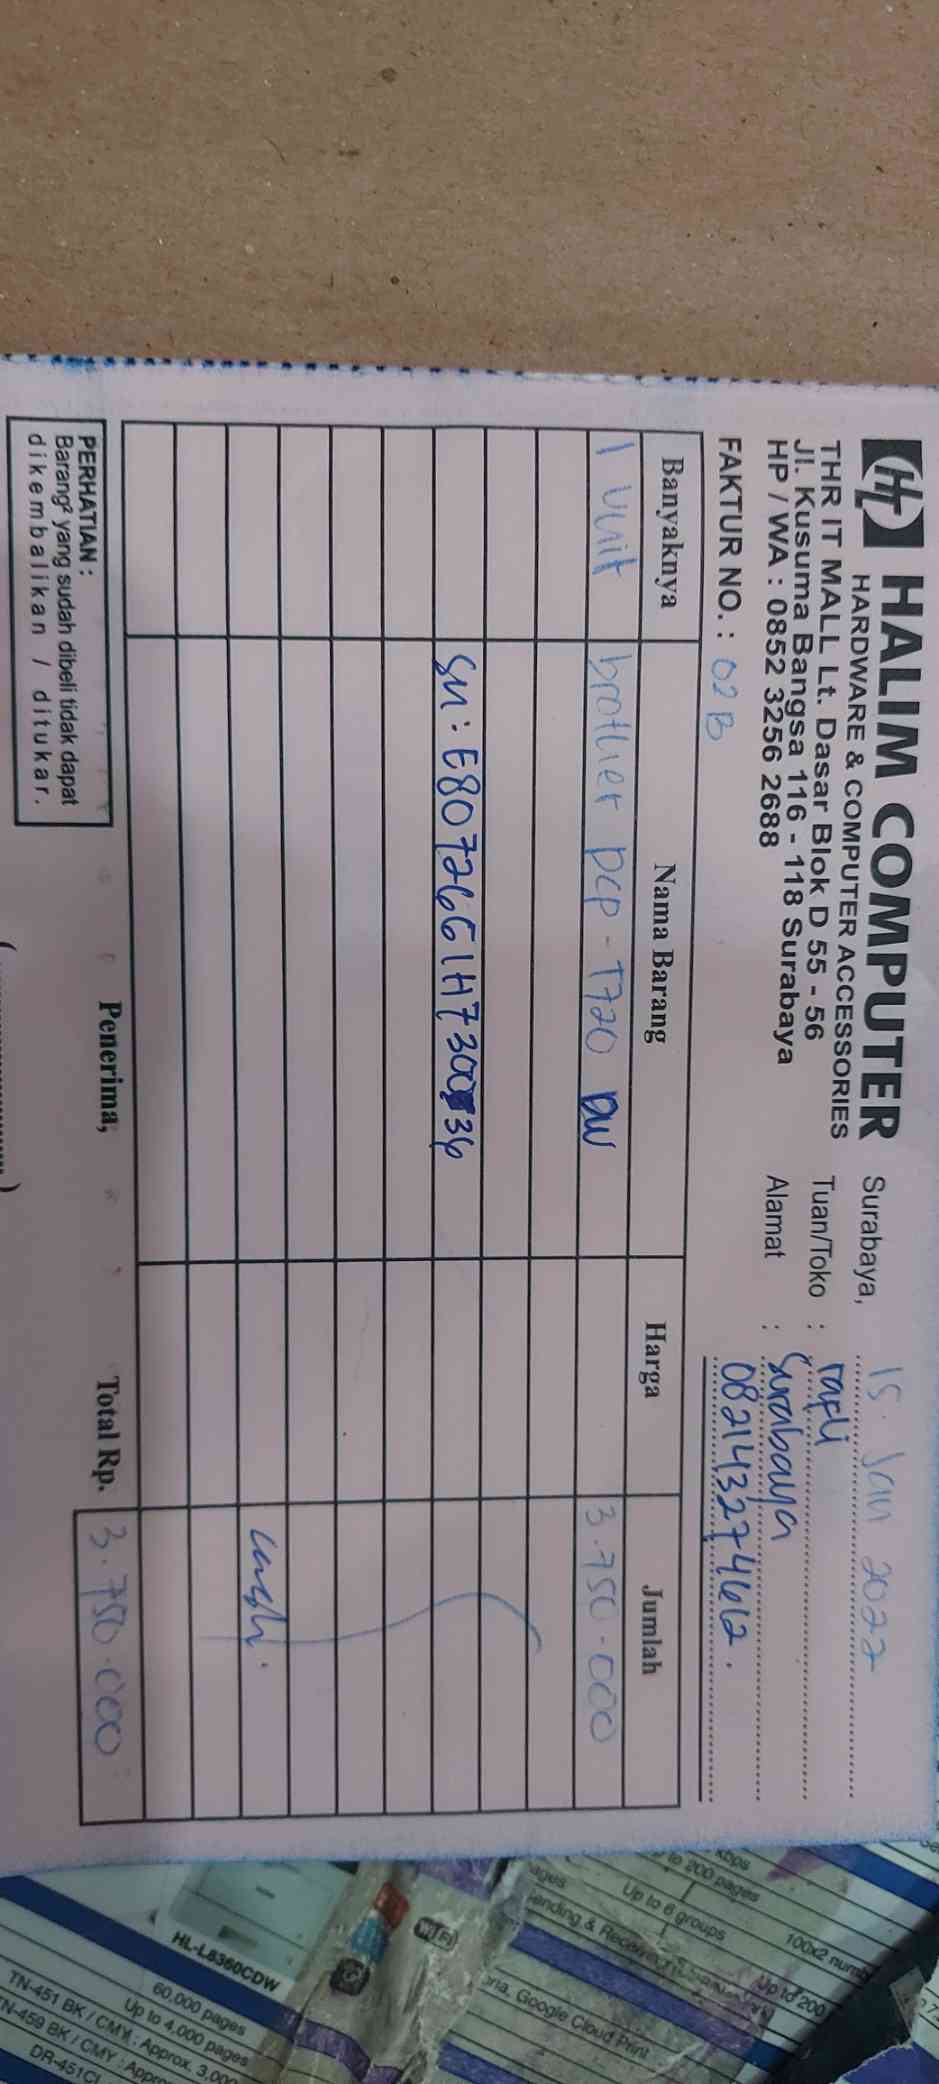 HALIM COMPUTER
HARDWARE & COMPUTER ACCESSORIES
THR IT MALL Lt. Dasar Blok D 55 - 56
Jl. Kusuma Bangsa 116 - 118 Surabaya
HP / WA : 0852 3256 2688
Surabaya, 15 Jan 2022
Tuan/Toko : rafli
Alamat : Surabaya
082143274662.
FAKTUR NO. : 02B
Banyaknya Nama Barang Harga Jumlah
1 unit brother DCP - T720 DW 3.750.000
SN : E80726G1H730 36
cash.
Penerima, Total Rp. 3.750.000
PERHATIAN :
Barang² yang sudah dibeli tidak dapat
dikembalikan / ditukar.
kbps
to 200 pages
Up to 6 groups
100x2
Up to 200
Google Cloud Print
WiFi
HL-L8360CDW
60,000 pages
Up to 4,000 pages
TN-451 BK / CMY : Approx. 3,000
TN-459 BK / CMY
DR-451CL